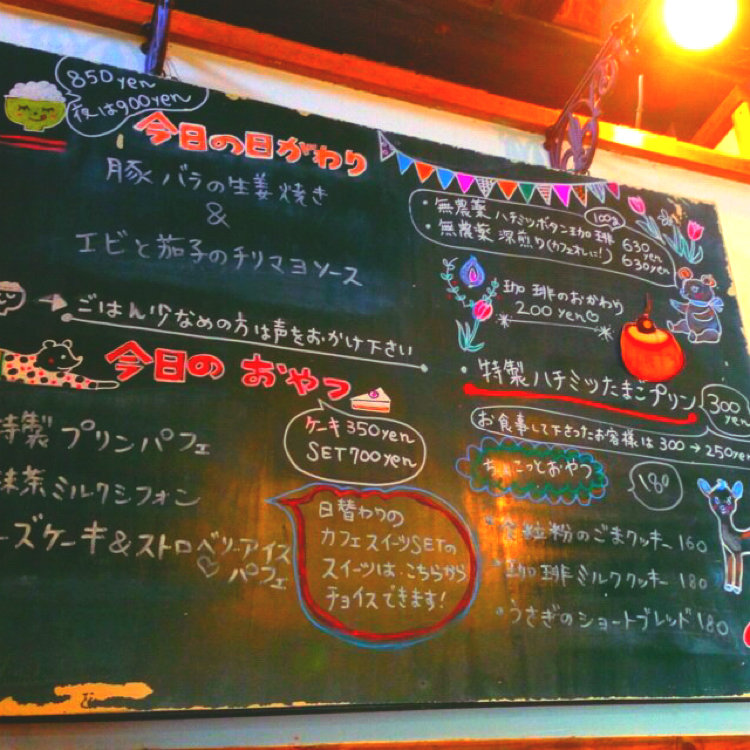 850yen
夜は900yen
今日の日がわり
豚バラの生姜焼き
&
エビと茄子のチリマヨソース
→ごはん少なめの方は声をおかけ下さい
今日のおやつ
ケーキ350yen
SET700yen
特製プリンパフェ
抹茶ミルクシフォン
ーズケーキ&ストロベリーアイス
♡パフェ
日替わりの
カフェスイーツSETの
スイーツは、こちらから
チョイスできます!
・無農薬 ハチミツボタン珈琲 630yen
100g
・無農薬 深煎り(カフェオレに!) 630yen
珈琲のおかわり
200yen♡
・特製ハチミツたまごプリン
300yen
お食事して下さったお客様は300→250yen
ちょこっとおやつ
180
・全粒粉のごまクッキー 160
・珈琲ミルククッキー 180
・うさぎのショートブレッド 180